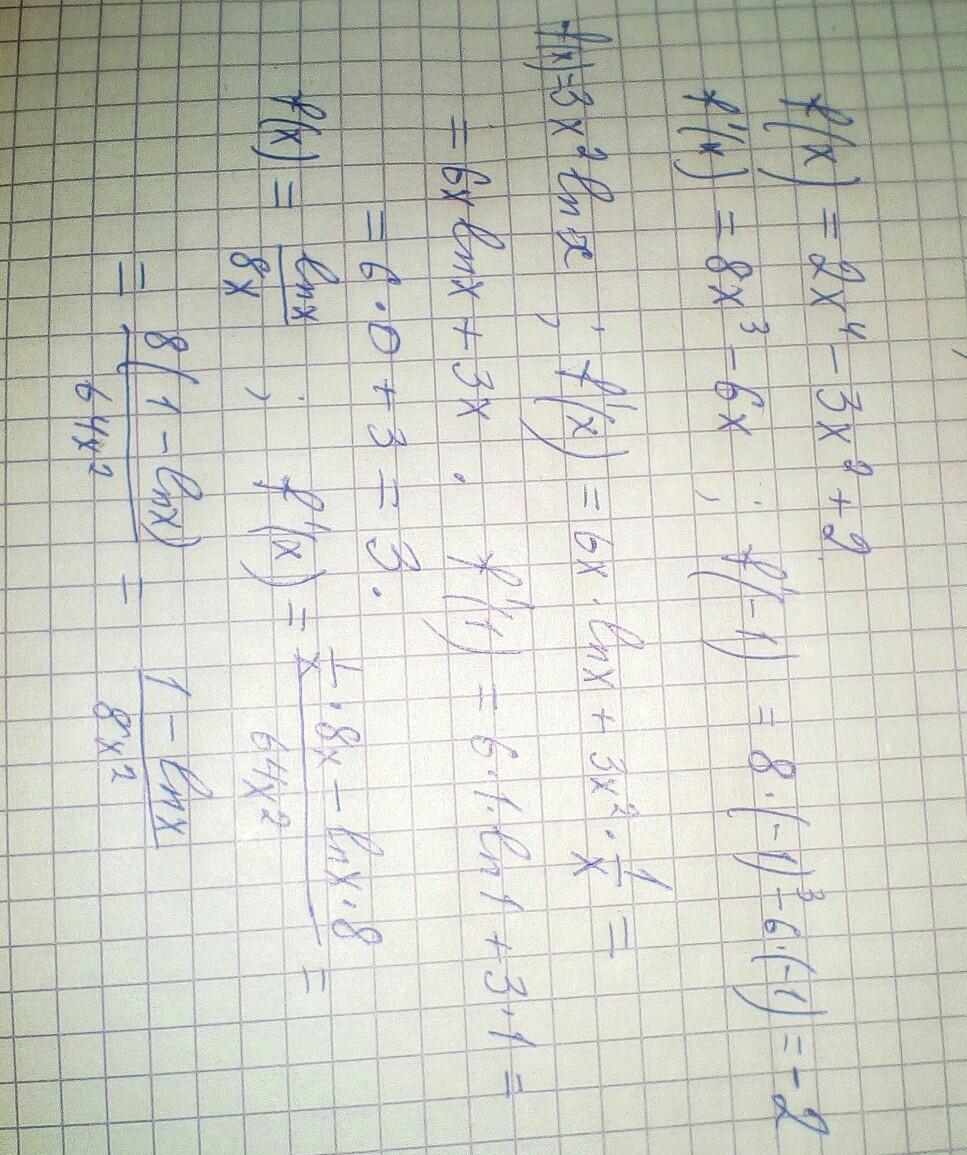 f(x) = 2x⁴ - 3x² + 2.
f'(x) = 8x³ - 6x ; f'(-1) = 8·(-1)³ - 6·(-1) = -2
f(x) = 3x² ln x ; f'(x) = 6x · ln x + 3x² · 1/x =
= 6x ln x + 3x . f'(1) = 6·1·ln 1 + 3·1 =
= 6·0 + 3 = 3.
f(x) = ln x / 8x ; f'(x) = (1/x · 8x - ln x · 8) / 64x² =
= 8(1 - ln x) / 64x² = (1 - ln x) / 8x²